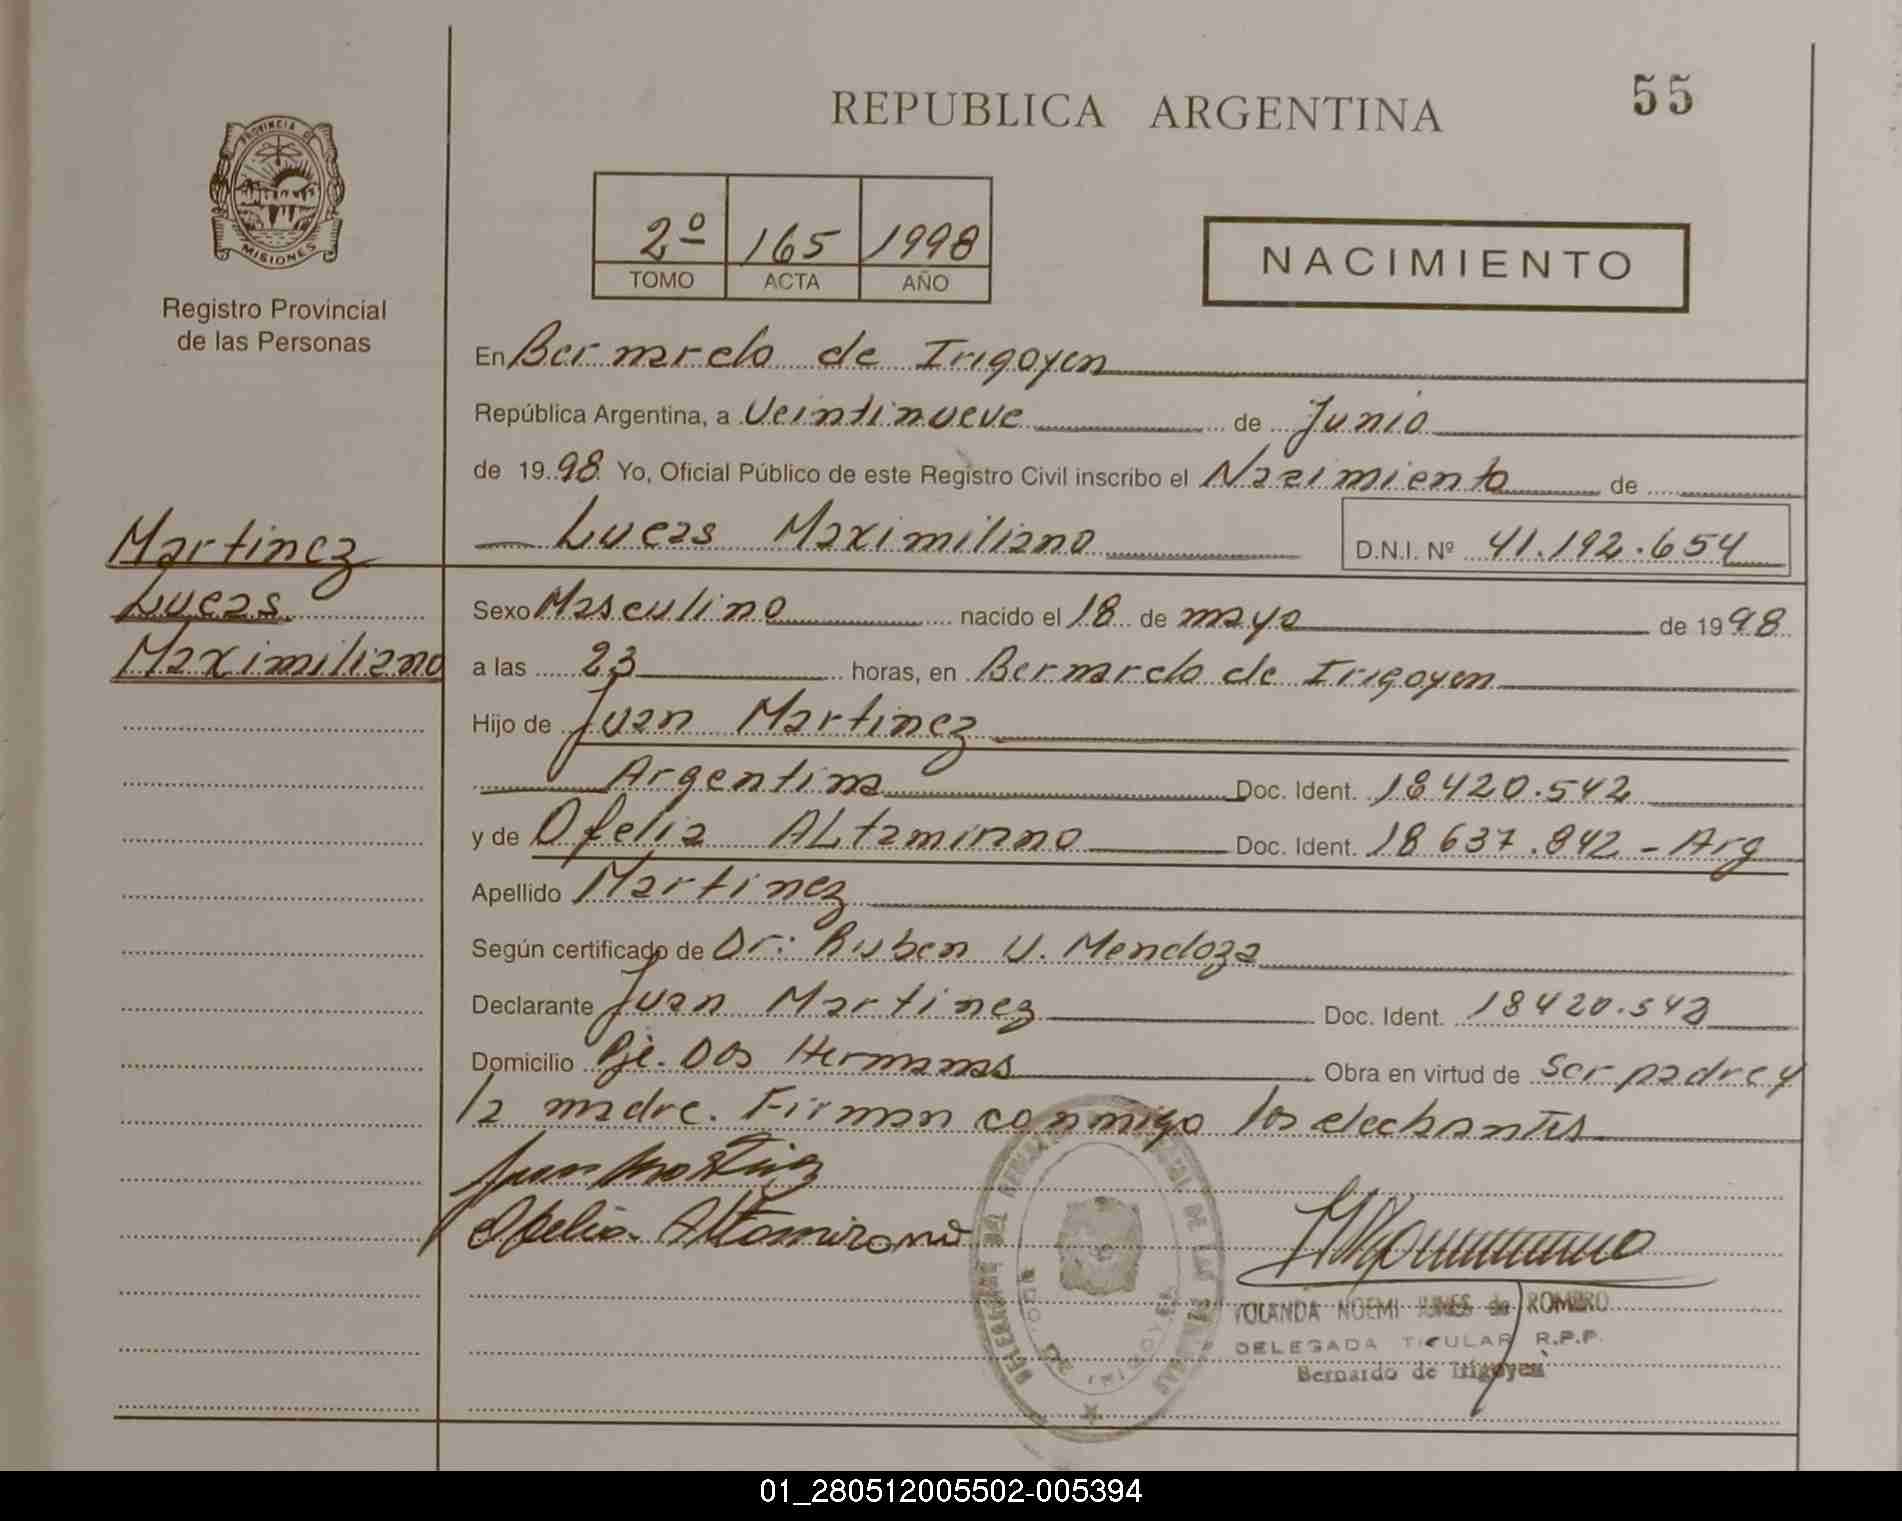 55
REPUBLICA ARGENTINA
PROVINCIA DE
MISIONES
Registro Provincial
de las Personas
2º 165 1998
TOMO ACTA AÑO
NACIMIENTO
En Bernardo de Irigoyen
República Argentina, a Veintinueve de Junio
de 1998 Yo, Oficial Público de este Registro Civil inscribo el Nacimiento de
Lucas Maximiliano D.N.I. Nº 41.192.654
Martinez
Lucas
Maximiliano
Sexo Masculino nacido el 18 de mayo de 1998
a las 23 horas, en Bernardo de Irigoyen
Hijo de Juan Martinez
Argentina Doc. Ident. 18420.542
y de Ofelia ALtamirano Doc. Ident. 18637.842 - Arg
Apellido Martinez
Según certificado de Dr: Ruben U. Mendoza
Declarante Juan Martinez Doc. Ident. 18420.542
Domicilio Pje. Dos Hermanas Obra en virtud de Ser padre y
la madre. Firman conmigo los
Juan Martinez
Ofelia Altamirano
YOLANDA NOEMI de ROMERO
DELEGADA TITULAR R.P.P.
Bernardo de Irigoyen
01_280512005502-005394